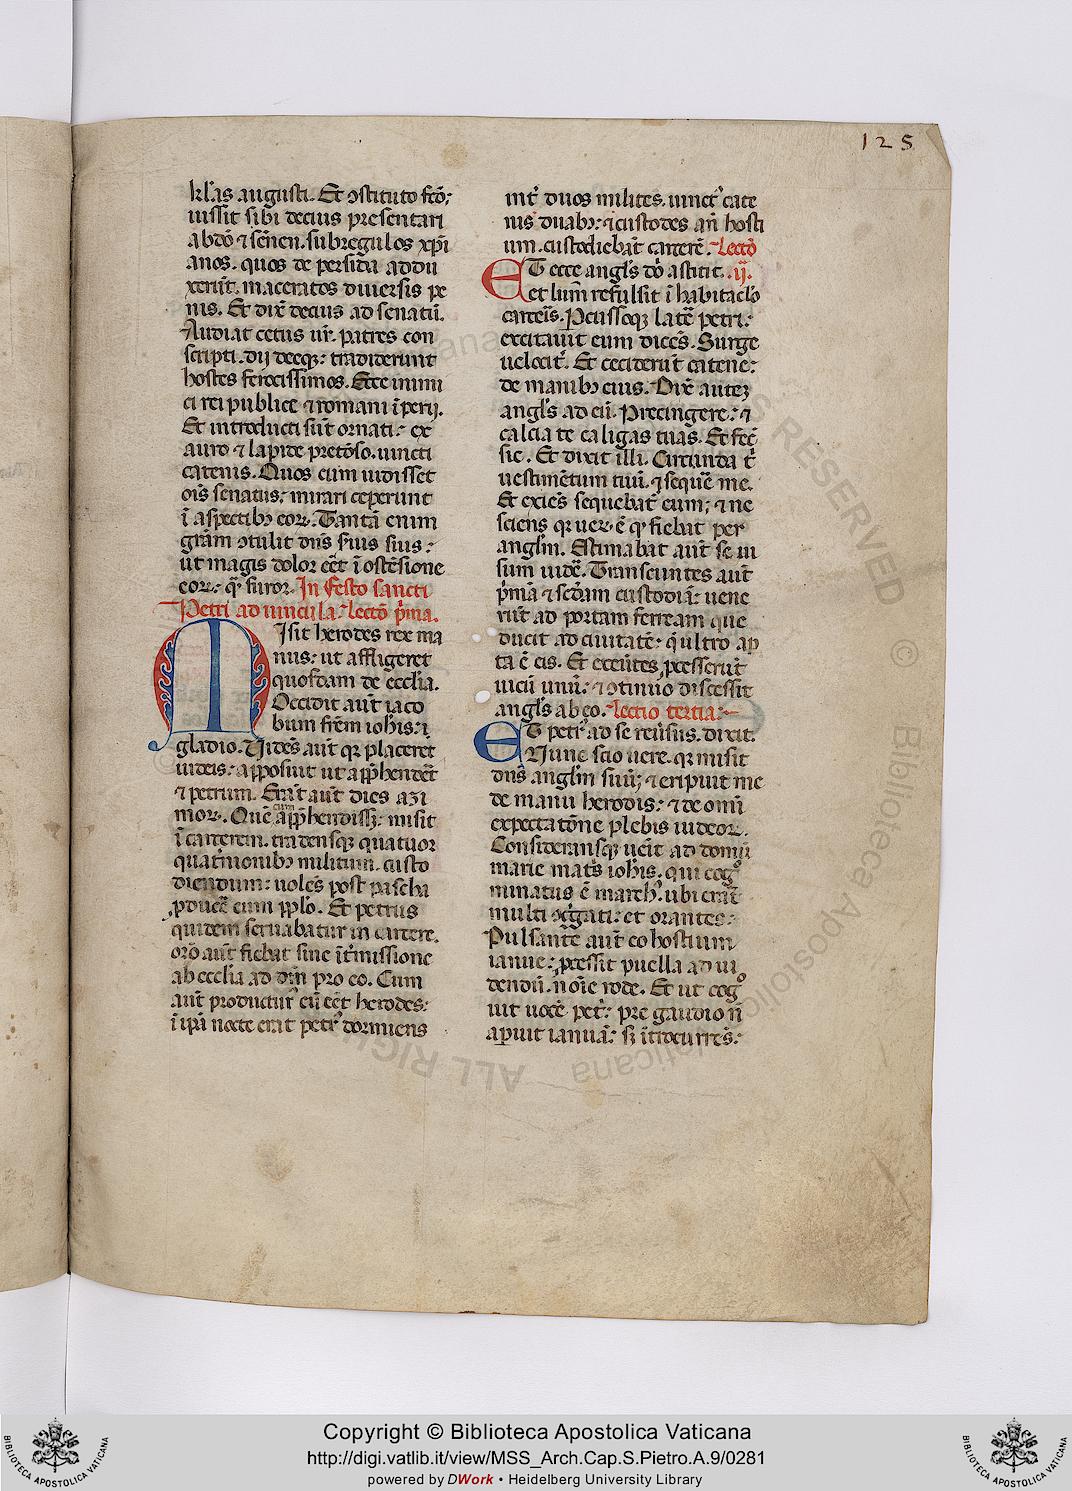 125
kl'as augusti. Et ɔstituto fcō;
iussit sibi decius presentari
abdō ⁊ sēnen. subregulos xp̄i
anos. quos de persida addu
xerūt. maceratos diuersis pe
nis. Et dix̄ decius ad senatū.
Audiat cetus ur̄. patres con
scripti. dij deeq; tradiderunt
hostes ferocissimos. Ecce inimi
ci rei publice ⁊ romani īperij.
Et introducti sūt ornati: ex
auro ⁊ lapide pretōso. uincti
catenis. Quos cum uidisset
oīs senatus: mirari ceperunt
ī aspectibꝰ eoꝝ. Tantā enim
grām ɔtulit dn̄s s̄uis suis:
ut magis dolor eēt ī ostēsione
eoꝝ: q̄ furor. In festo sancti
Petri ad uincula. Lectō p̄ma.
MIsit herodes rex ma
nus: ut affligeret
quosdam de ecclīa.
Occidit aūt iaco
bum frēm ioh̄is: ī
gladio. Uidēs aūt qꝛ placeret
iudeis: apposuit ut app̄henderēt
⁊ petrum. Erāt aūt dies azi
moꝝ. Que cum app̄hendissꝫ: misit
ī carcerem. tradensqꝫ quatuor
quat̄nionibꝰ militum. custo
diendum: uolēs post pascha
ꝓducēʼ eum pp̄lo. Et petrus
quidem seruabatur in carcere.
orō aūt fiebat sine īt̄missione
ab ecclīa ad dm̄ pro eo. Cum
aūt productur' eū eēt herodes:
ī ip̄a nocte erat petr' dormiens
int̄ duos milites. uinct' cate
nis duabꝰ: ⁊ custodes an̄ hosti
um. custodiebāt carcerē. Lectō
ij.
ET ecce angl's dn̄i astitit.
et lum̄ refulsit ī habitacl'o
carceris. Pcussoqꝫ latē petri:
excitauit eum dicēs. Surge
uelocit̄. Et ceciderūt catene:
de manibꝰ eius. Dix̄ autez
angl's ad eū. Precingere: ⁊
calcia te caligas tuas. Et fec̄
sic. Et dixit illi. Circunda t'
uestimētum tuū. ⁊ seque me.
Et exiēs sequebat̄ eum; ⁊ ne
sciens qꝛ ueꝝ ē qꝫ fiebat per
angl'm. Estimabat aūt se ui
sum uidē. Transeuntes aūt
p̄ma ⁊ scdam custodiā: uene
rūt ad portam ferream que
ducit ad ciuitatē: q̄ ultro ap
ta ē eis. Et exeūtes ꝓcesserūt
uicū unū: ⁊ ɔtinuo discessit
angl's ab eo. Lectio tertia:
ET petr' ad se reūsus. dixit.
Nunc scio uere. qꝛ misit
dn̄s angl'm suū; ⁊ eripuit me
de manu herodis: ⁊ de omī
expectatōne plebis iudeoꝝ.
Consideransqꝫ uēit ad domū
marie mat̄s ioh̄is. qui cogͦ
minatus ē march'. ubi erāt
multi ɔg̑gati: et orantes:
Pulsante aūt eo hostium
ianue: ꝓcessit puella ad ui
dendū. noīe rode. Et ut cogͦ
uit uocē pet'. pre gaudio n̄
apuit ianuā: sꝫ īt̄ocurrēs:
Copyright © Biblioteca Apostolica Vaticana
http://digi.vatlib.it/view/MSS_Arch.Cap.S.Pietro.A.9/0281
powered by DWork • Heidelberg University Library
BIBLIOTECA APOSTOLICA VATICANA
BIBLIOTECA APOSTOLICA VATICANA